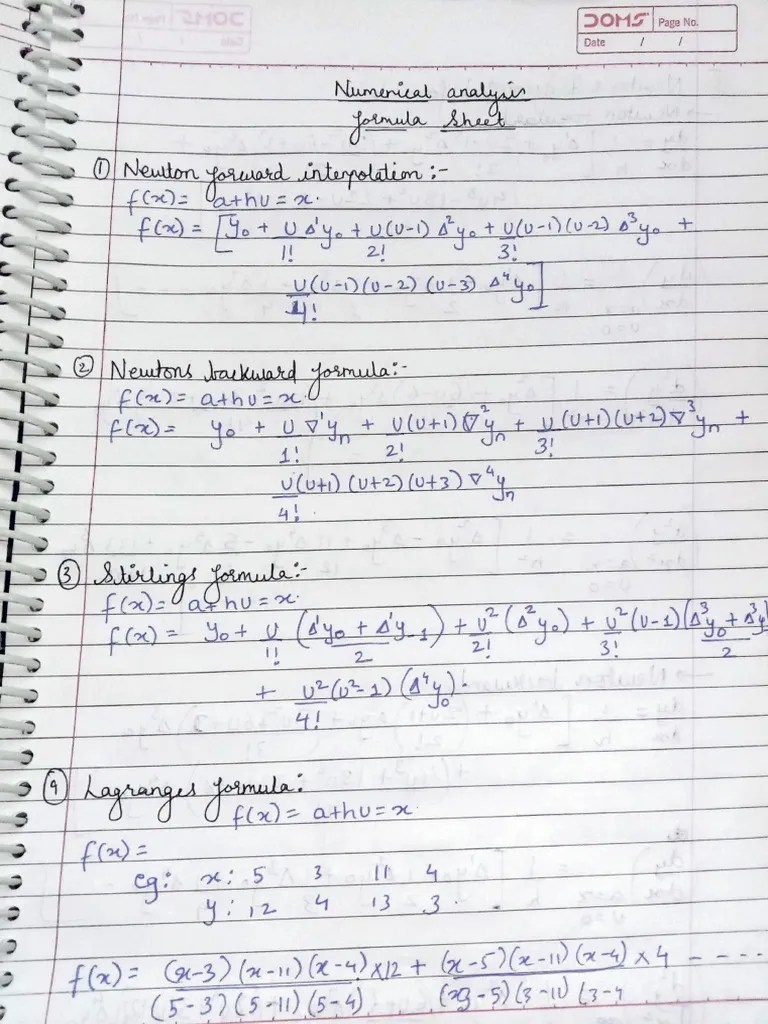 DOMS Page No.
Date / /
Numerical analysis
formula sheet
① Newton forward interpolation :-
f(x) = a+hu = x.
f(x) = [y₀ + U/1! Δ¹y₀ + U(U-1)/2! Δ²y₀ + U(U-1)(U-2)/3! Δ³y₀ +
U(U-1)(U-2)(U-3)/4! Δ⁴y₀]
② Newtons backward formula:-
f(x) = a+hu = x.
f(x) = y₀ + U/1! ∇¹yₙ + U(U+1)/2! ∇²yₙ + U(U+1)(U+2)/3! ∇³yₙ +
U(U+1)(U+2)(U+3)/4! ∇⁴yₙ
③ Stirlings formula:-
f(x) = a+hu = x.
f(x) = y₀ + U/1! (Δ¹y₀ + Δ¹y₋₁)/2 + U²/2! (Δ²y₀) + U²(U-1)/3! (Δ³y₀ + Δ³y)/2
+ U²(U²-1)/4! (Δ⁴y₀).
④ Lagranges formula:
f(x) = a+hu = x.
f(x) =
eg: x: 5 3 11 4
y: 12 4 13 3.
f(x) = (x-3)(x-11)(x-4)/(5-3)(5-11)(5-4) ×12 + (x-5)(x-11)(x-4)/(3-5)(3-11)(3-4 ×4 - - - - -